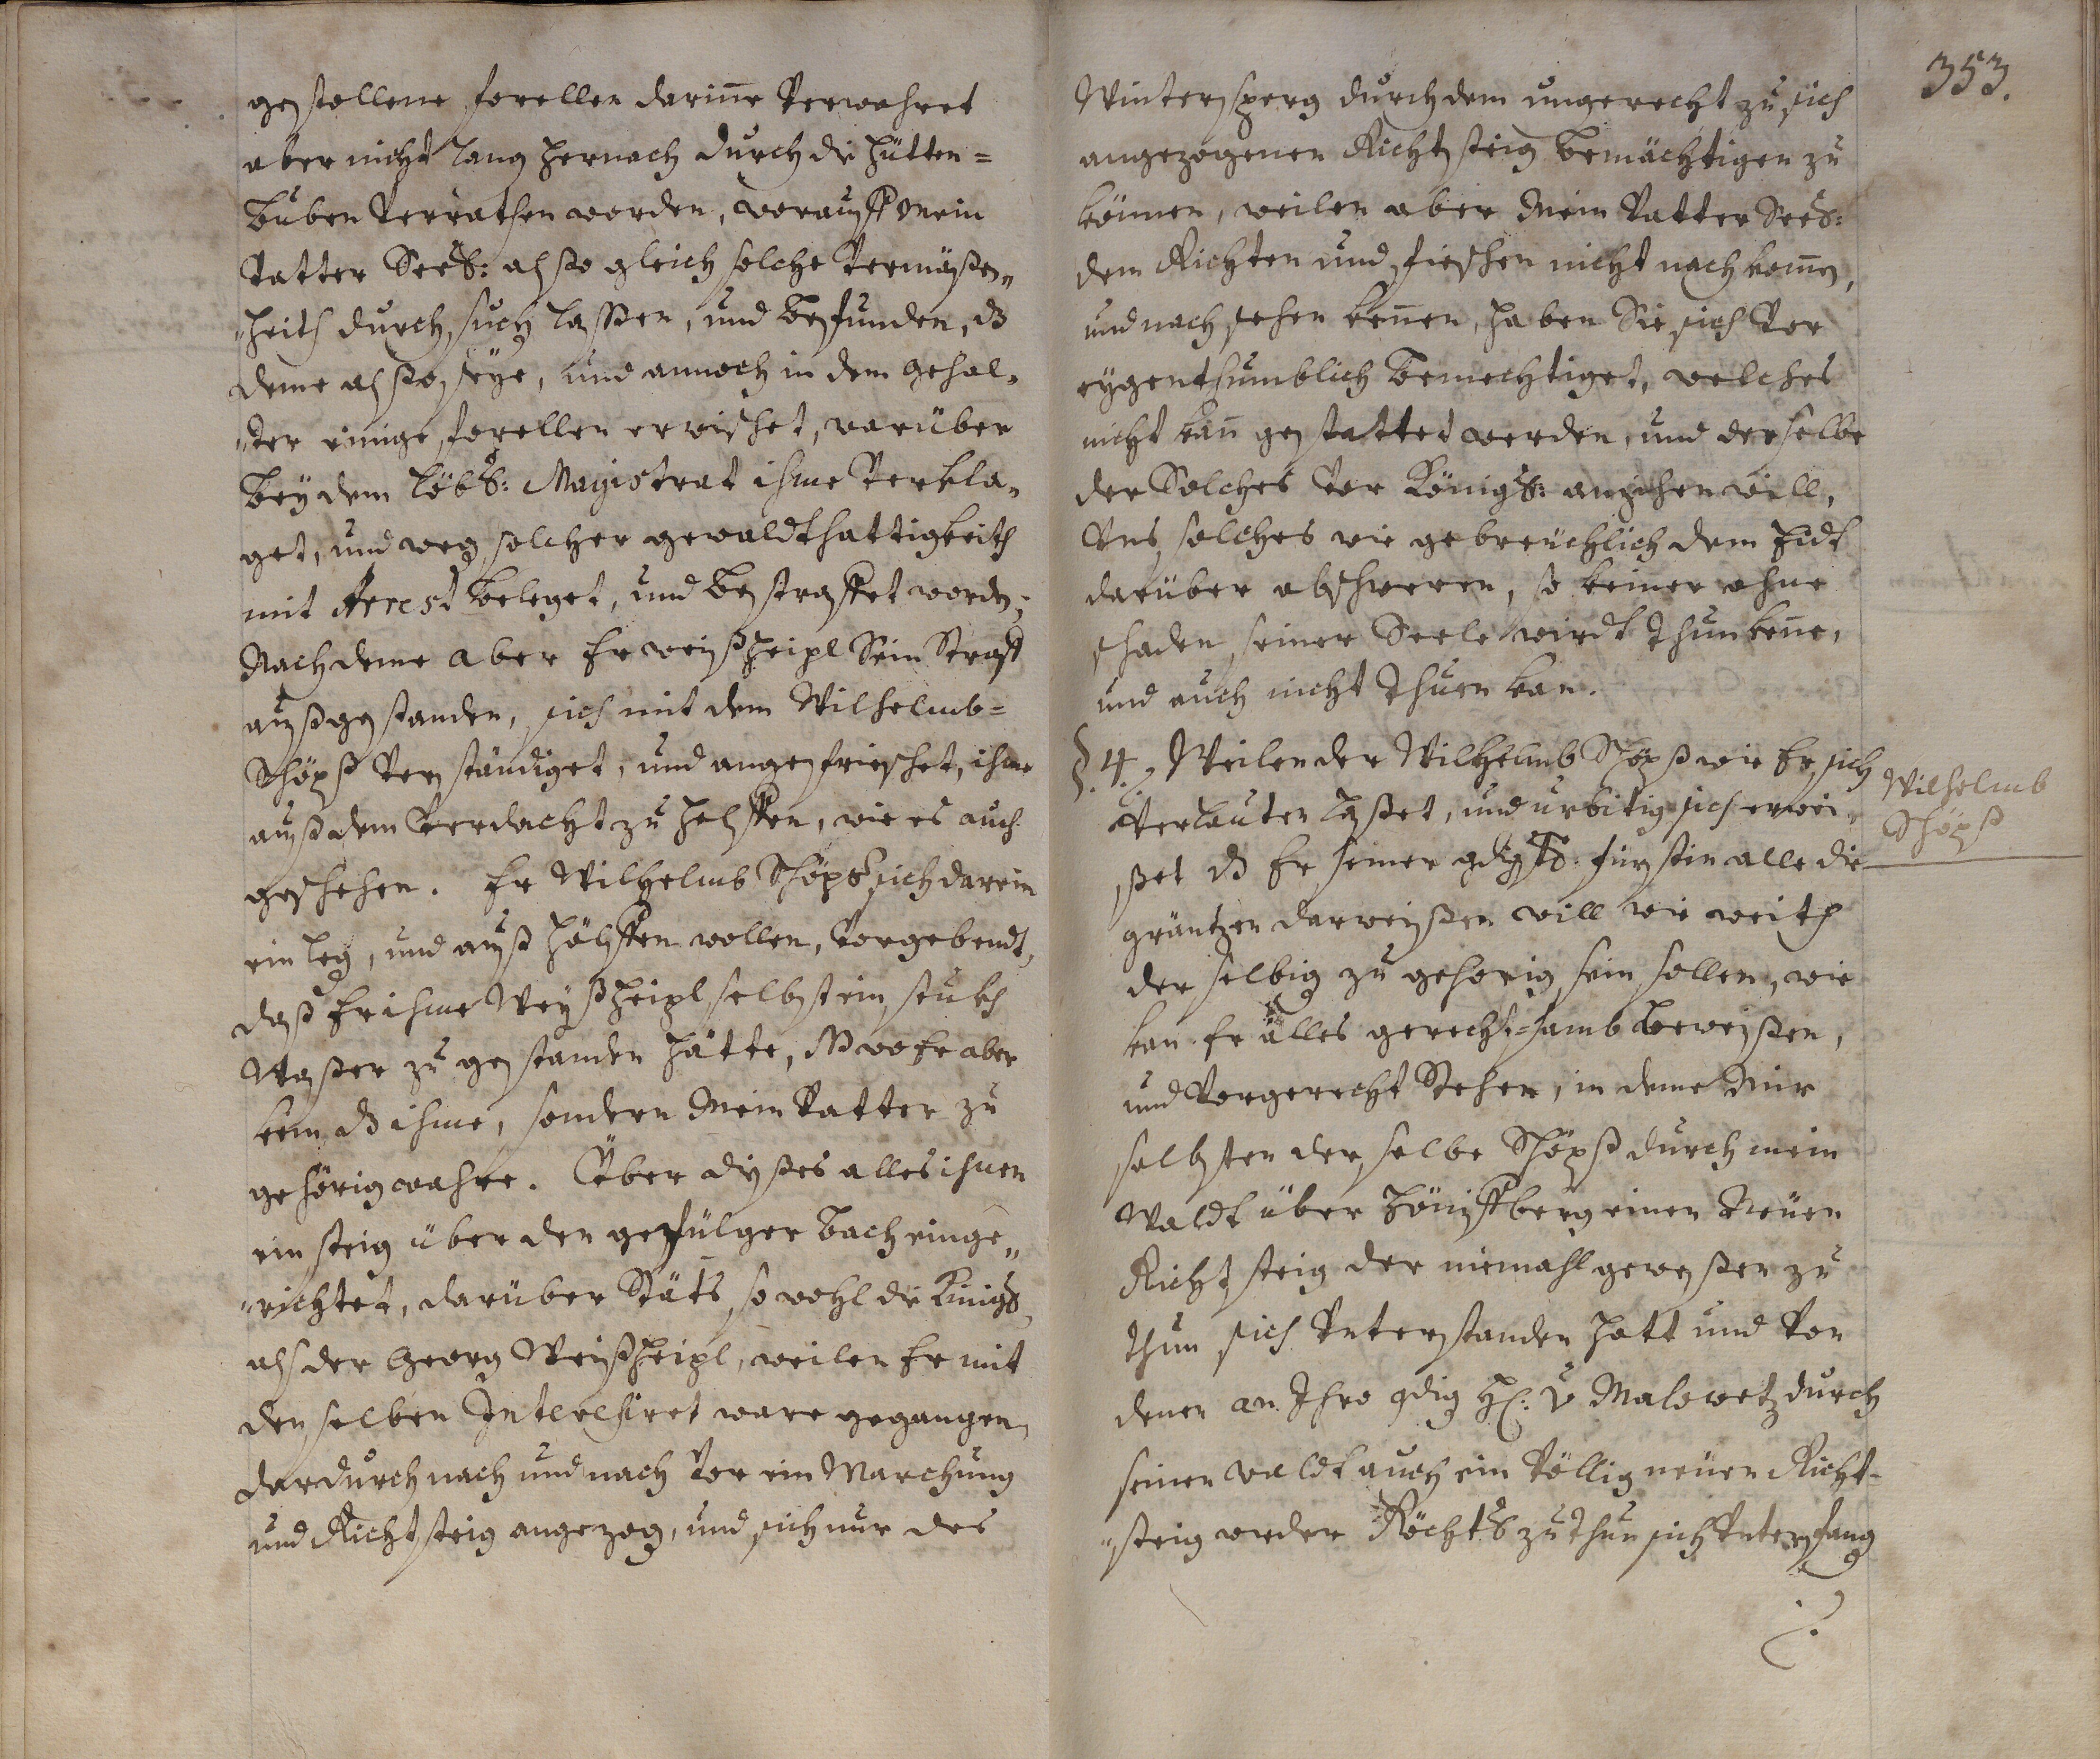 gestollene forellen darinne Verwahret
aber nicht lang hernach durch die hütten=
buben Verrathen worden, worauff Mein
Vatter Seel: alsso gleich solche Vermässen„
„heith durch such lassen, und befunden, dß
deme alsso seye, und annoch in dem gehal„
„ter einige forellen erwischet, warüber
bey dem löbl: Magistrat ihme Verkla„
get, und weg solcher gewaldthattigkeith
mit Arest beleget, und bestraffet worden;
Nach deme aber Er weyßheipl Sein Straff
außgestanden, sich mit dem Wilhelmb=
Schöpß Verständiget, und angefrischet, ihme
auß dem Verdacht zu helffen, wie es auch
geschehen. Er Wilhelmb Schöpß sich darein
ein leg, und auß hölffen wollen, Vorgebendt,
daß Er ihme Weyßheipl selbst ein stukh
Wasser zu gestanden hätte, Wo Er aber
kein dß ihme, sondern Mein Vatter zu
gehörig wahre. Über dysses alles ihnen
ein steig über den gefülger bach einge„
„richtet, darüber Stäts so wohl die Künigl,
alß der Georg Weyßheipl, weilen Er mit
denselben Interessiret ware gegangen,
dardurch nach und nach Vor ein Marchung
und Richtsteig angezog, und sich nur des
353.
Wintersperg durch dem ungerecht zu sich
angezogenen Richtsteig bemächtigen zu
können, weilen aber Mein Vatter Seel:
dem Richten und fischen nicht nach komen,
und nach sehen kennen, haben Sie sich Vor
eygenthumblich bemechtiget, welches
nicht kan gestattet werden, und derselbe
der Solches Vor Königl: anziehen will,
Uns solches wie gebreuchlich dem Eidt
darüber abschweren, so keiner ohne
schaden seiner Seele wirdt thun kene,
und auch nicht thuen kan.
§. 4. Weilen der Wilhelmb Schöpß wie Er sich
Verlauten lasset, und urbitig sich erwei„
sset dß Er seiner gdigsten: fürstin alle die
gräntzen darweyssen will wie weith
der selbig zu gehorig sein sollen, wie
kan Er alles gerecht=samb beweyssen,
und Vor gerecht Stehen, in deme Mir
selbsten der selbe Schöpß durch mein
Waldt über hönigsberg einen Neuen
Richtsteig der niemahl gewessen zu
thun sich Unterstanden hatt und Von
denen an Ihro gdig H: v Malowetz durch
seinen waldt auch ein Völlig neuen Richt=
„steig wider Röchts zu thun sich Unterfang
Wilhelmb
Schöpß